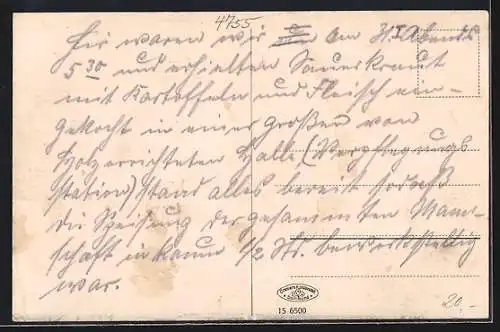 4755
Hier waren wir am 31. Abends
5 30 und erhielten Sauerkraut
mit Kartoffeln und Fleisch ein-
gekocht in einer großen von
Holz errichteten Halle (Verpflegungs
station) stand alles bereit sodaß
die Speisung der gesammten Mann-
schaft in kaum 1/2 Std. bewerkstellig
war.
15 6500
20.-